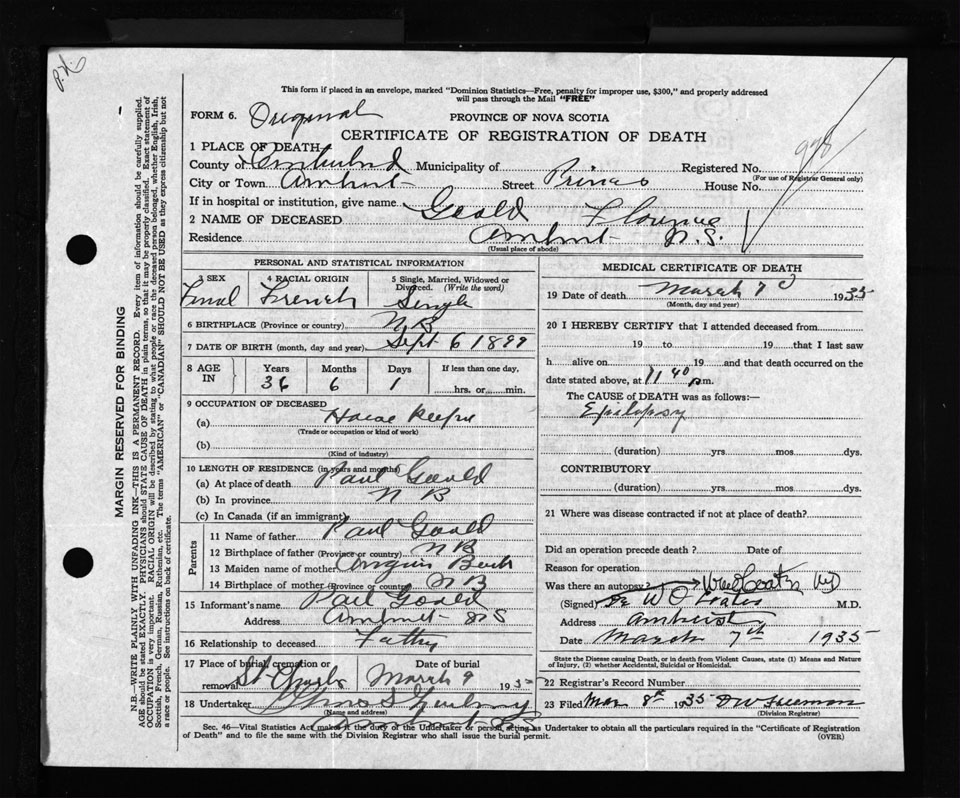 P.H.
This form if placed in an envelope, marked "Dominion Statistics—Free, penalty for improper use, $300," and properly addressed
will pass through the Mail "FREE"
FORM 6. Original PROVINCE OF NOVA SCOTIA
CERTIFICATE OF REGISTRATION OF DEATH
1 PLACE OF DEATH
County of Municipality of Registered No. 978
(For use of Registrar General only)
City or Town Amherst Street House No.
If in hospital or institution, give name
2 NAME OF DECEASED Florence
Residence Amherst N.S.
(Usual place of abode)
PERSONAL AND STATISTICAL INFORMATION
3 SEX 4 RACIAL ORIGIN 5 Single, Married, Widowed or
Divorced. (Write the word)
French Single
6 BIRTHPLACE (Province or country) N B
7 DATE OF BIRTH (month, day and year) Sept 6
8 AGE IN Years Months Days If less than one day,
36 6 1 hrs. or min.
9 OCCUPATION OF DECEASED
(a) House keeper
(Trade or occupation or kind of work)
(b)
(Kind of industry)
10 LENGTH OF RESIDENCE (in years and months)
(a) At place of death Paul
(b) In province N B
(c) In Canada (if an immigrant)
Parents
11 Name of father Paul
12 Birthplace of father (Province or country) N B
13 Maiden name of mother
14 Birthplace of mother (Province or country) N B
15 Informant's name Paul
Address Amherst N S
16 Relationship to deceased Father
17 Place of burial, cremation or Date of burial
removal St Charles March 9 193
18 Undertaker
(Name and address)
Amherst N.S.
MEDICAL CERTIFICATE OF DEATH
19 Date of death March 7 1935
(Month, day and year)
20 I HEREBY CERTIFY that I attended deceased from
19 to 19 that I last saw
h alive on 19 and that death occurred on the
date stated above, at 11 40 p.m.
The CAUSE of DEATH was as follows:—
Epilepsy
(duration) yrs. mos. dys.
CONTRIBUTORY
(duration) yrs. mos. dys.
21 Where was disease contracted if not at place of death?
Did an operation precede death? Date of
Reason for operation
Was there an autopsy?
(Signed) Dr W O Coates M.D.
Address Amherst
Date March 7th 1935
State the Disease causing Death, or in death from Violent Causes, state (1) Means and Nature
of Injury, (2) whether Accidental, Suicidal or Homicidal.
22 Registrar's Record Number
23 Filed Mar 8th 1935
(Division Registrar)
Sec. 46—Vital Statistics Act make it the duty of the Undertaker or person acting as Undertaker to obtain all the particulars required in the "Certificate of Registration
of Death" and to file the same with the Division Registrar who shall issue the burial permit. (OVER)
MARGIN RESERVED FOR BINDING
N.B.—WRITE PLAINLY WITH UNFADING INK—THIS IS A PERMANENT RECORD. Every item of information should be carefully supplied.
AGE should be stated EXACTLY. PHYSICIANS should STATE CAUSE OF DEATH in plain terms, so that it may be properly classified. Exact statement of
OCCUPATION is very important. RACIAL ORIGIN will be described by stating to what people or race the deceased person belonged, whether English, Irish,
Scottish, French, German, Russian, Ruthenian, etc. The terms "AMERICAN" or "CANADIAN" SHOULD NOT BE USED as they express citizenship but not
a race or people. See instructions on back of certificate.